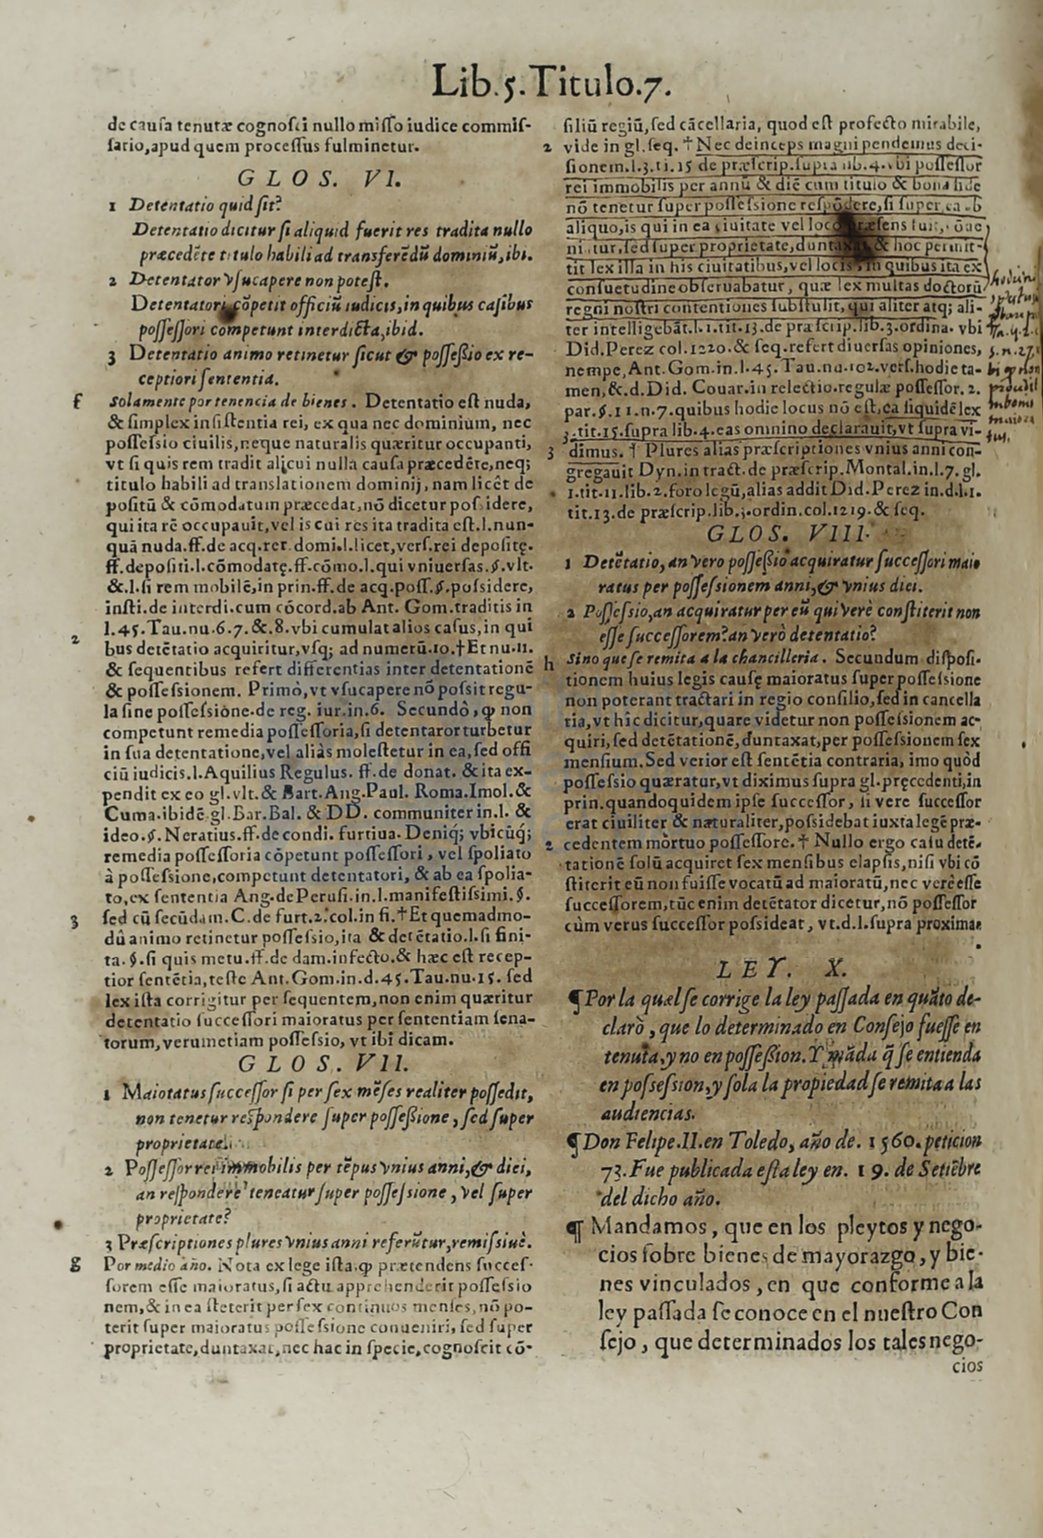 Lib.5.Titulo.7.
de causa tenutæ cognosci nullo misso iudice commis-
sario,apud quem processus fulminetur.
GLOS. VI.
1 Detentatio quid sit?
Detentatio dicitur si aliquid fuerit res tradita nullo
præcedēte titulo habili ad transferēdū dominiū,ibi.
2 Detentator vsucapere non potest.
Detentatori cōpetit officiū iudicis,in quibus casibus
possessori competunt interdicta,ibid.
3 Detentatio animo retinetur sicut & possessio ex re-
ceptiori sententia.
f Solamente por tenencia de bienes. Detentatio est nuda,
& simplex insistentia rei, ex qua nec dominium, nec
possessio ciuilis,neque naturalis quæritur occupanti,
vt si quis rem tradit alicui nulla causa præcedēte,neq;
titulo habili ad translationem dominij, nam licèt de
positū & cōmodatum præcedat,nō dicetur possidere,
qui ita rē occupauit,vel is cui res ita tradita est.l.nun-
quā nuda.ff.de acq.rer.domi.l.licet,vers.rei depositę.
ff.depositi.l.cōmodatę.ff.cōmo.l.qui vniuersas.§.vlt.
&.l.si rem mobilē,in prin.ff.de acq.poss.§.possidere,
insti.de interdi.cum cōcord.ab Ant. Gom.traditis in
l.45.Tau.nu.6.7.&.8.vbi cumulat alios casus,in qui
2 bus detētatio acquiritur,vsq; ad numerū.10.†Et nu.11.
& sequentibus refert differentias inter detentationē
& possessionem. Primò,vt vsucapere nō possit regu-
la sine possessiōne.de reg. iur.in.6. Secundò, ꝙ non
competunt remedia possessoria,si detentator turbetur
in sua detentatione,vel aliàs molestetur in ea,sed offi
ciū iudicis.l.Aquilius Regulus. ff.de donat. & ita ex-
pendit ex eo gl.vlt.& Bart.Ang.Paul. Roma.Imol.&
Cuma.ibidē gl.Bar.Bal. & DD. communiter in.l. &
ideo.§.Neratius.ff.de condi. furtiua. Deniq; vbicūq;
remedia possessoria cōpetunt possessori, vel spoliato
à possessione,competunt detentatori, & ab ea spolia-
to,ex sententia Ang.de Perusi.in.l.manifestissimi.§.
3 sed cū secūdam.C.de furt.2.col.in fi.†Et quemadmo-
dū animo retinetur possessio,ita & detētatio.l.si fini-
ta.§.si quis metu.ff.de dam.infecto.& hæc est recep-
tior sentētia,teste Ant.Gom.in.d.45.Tau.nu.15. sed
lex ista corrigitur per sequentem,non enim quæritur
detentatio successori maioratus per sententiam sena-
torum,verumetiam possessio, vt ibi dicam.
GLOS. VII.
1 Maioratus successor si per sex mēses realiter possedit,
non tenetur respondere super possessione, sed super
proprietate.
2 Possessor rei immobilis per tēpus vnius anni,& diei,
an respondere teneatur super possessione, vel super
proprietate?
3 Præscriptiones plures vnius anni referūtur,remissiuè.
g Por medio año. Nota ex lege ista,ꝙ prætendens succes-
sorem esse maioratus,si actu apprehenderit possessio
nem,& in ea steterit per sex continuos menses,nō po-
terit super maioratus possessione conueniri, sed super
proprietate,duntaxat,nec hac in specie,cognoscit cō-
siliū regiū,sed cācellaria, quod est profecto mirabile,
2 vide in gl.seq. † Nec deinceps magni pendemus deci-
sionem.l.3.ti.15 de præscrip.supra lib.4.vbi possessor
rei immobilis per annū & diē cum titulo & bona fide
nō tenetur super possessione respōdere,si super ea ab
aliquo,is qui in ea ciuitate vel loco præsens fuit,
sed super proprietate,duntaxat, & hoc permit-
tit lex illa in his ciuitatibus,vel locis, in quibus ita ex
consuetudine obseruabatur, quæ lex multas doctorū
regni nostri contentiones substulit, qui aliter atq; ali-
ter intelligebāt.l.1.tit.13.de præscrip.lib.3.ordina. vbi
Did.Perez col.1220.& seq.refert diuersas opiniones,
nempe,Ant.Gom.in.l.45.Tau.nu.102.vers.hodie ta-
men,&.d.Did. Couar.in relectio.regulæ possessor.2.
par.§.11.n.7.quibus hodie locus nō est,ea siquidē lex
3.tit.15.supra lib.4.eas omnino declarauit,vt supra vi-
3 dimus. † Plures alias præscriptiones vnius anni con-
gregauit Dyn.in tract.de præscrip.Montal.in.l.7.gl.
1.tit.11.lib.2.foro legū,alias addit Did.Perez in.d.l.1.
tit.13.de præscrip.lib.3.ordin.col.1219.& seq.
GLOS. VIII.
1 Detētatio,an vero possessio acquiratur successori maio
ratus per possessionem anni,& vnius diei.
2 Possessio,an acquiratur per eū qui verè constiterit non
esse successorem?an verò detentatio?
h Sino que se remita a la chancilleria. Secundum disposi-
tionem huius legis causę maioratus super possessione
non poterant tractari in regio consilio,sed in cancella
ria,vt hîc dicitur,quare videtur non possessionem ac-
quiri,sed detētationē,duntaxat,per possessionem sex
mensium.Sed verior est sentētia contraria, imo quòd
possessio quæratur,vt diximus supra gl.pręcedenti,in
prin.quandoquidem ipse successor, si vere successor
erat ciuiliter & naturaliter,possidebat iuxta legē præ-
2 cedentem mortuo possessore.† Nullo ergo casu detē-
tationē solū acquiret sex mensibus elapsis,nisi vbi cō
stiterit eū non fuisse vocatū ad maioratū,nec verè esse
successorem,tūc enim detētator dicetur,nō possessor
cùm verus successor possideat, vt.d.l.supra proxima.
LEY. X.
¶Por la qual se corrige la ley passada en quāto de-
clarò, que lo determinado en Consejo fuesse en
tenuta,y no en possession. Y māda q̄ se entienda
en possession,y sola la propiedad se remita a las
audiencias.
¶Don Felipe.II.en Toledo, año de. 1560.peticion
73.Fue publicada esta ley en. 19. de Setiēbre
del dicho año.
¶ Mandamos, que en los pleytos y nego-
cios sobre bienes de mayorazgo, y bie-
nes vinculados, en que conforme a la
ley passada se conoce en el nuestro Con
sejo, que determinados los tales nego-
cios